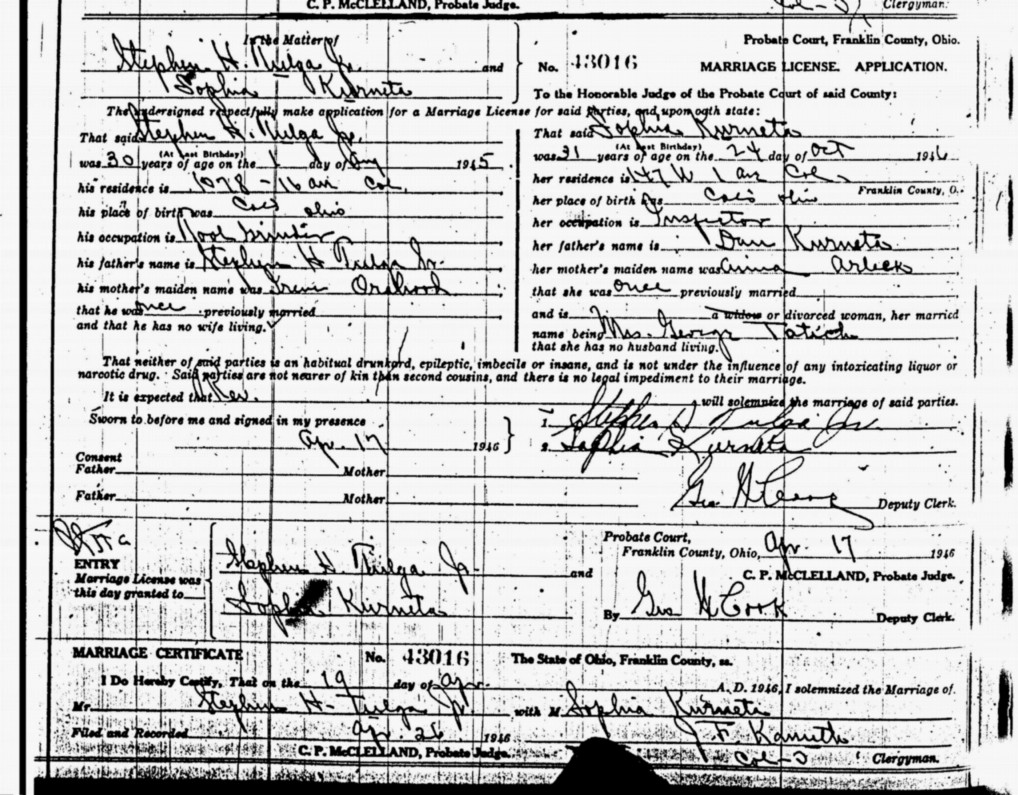 C. P. McCLELLAND, Probate Judge.
Col-3 Clergyman.
In the Matter of
Stephen H. Tulga Jr. and
Sophia Kurneta
Probate Court, Franklin County, Ohio.
No. 43016 MARRIAGE LICENSE. APPLICATION.
To the Honorable Judge of the Probate Court of said County:
The undersigned respectfully make application for a Marriage License for said parties, and upon oath state:
That said Stephen H. Tulga Jr.
(At Last Birthday)
was 30 years of age on the 1 day of Aug 1945
his residence is 1078 - 16 av Col.
his place of birth was Col's ohio
his occupation is Tool Grinder
his father's name is Stephen H Tulga Sr.
his mother's maiden name was
that he was once previously married
and that he has no wife living.
That said Sophia Kurneta
(At Last Birthday)
was 31 years of age on the 24 day of Oct 1946
her residence is 147 W 1 av Col.
Franklin County, O.
her place of birth was Col's ohio
her occupation is Inspector
her father's name is Dan Kurneta
her mother's maiden name was Anna
that she was once previously married
and is a widow or divorced woman, her married
name being Mrs. George Tatich
that she has no husband living.
That neither of said parties is an habitual drunkard, epileptic, imbecile or insane, and is not under the influence of any intoxicating liquor or
narcotic drug. Said parties are not nearer of kin than second cousins, and there is no legal impediment to their marriage.
It is expected that Rev. will solemnize the marriage of said parties.
Sworn to before me and signed in my presence
Apr. 17 1946
1. Stephen H Tulga Jr.
2. Sophia Kurneta
Consent
Father Mother
Father Mother
Geo H Cook Deputy Clerk.
ENTRY
Marriage License was
this day granted to
Stephen H. Tulga Jr. and
Sophia Kurneta
Probate Court,
Franklin County, Ohio, Apr 17 1946
C. P. McCLELLAND, Probate Judge.
By Geo H Cook Deputy Clerk.
MARRIAGE CERTIFICATE No. 43016 The State of Ohio, Franklin County, ss.
I Do Hereby Certify, That on the 19 day of Apr. A. D. 1946, I solemnized the Marriage of
Mr. Stephen H. Tulga Jr with M Sophia Kurneta
Filed and Recorded Apr. 26 1946
C. P. McCLELLAND, Probate Judge.
Col-3 Clergyman.